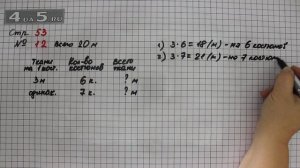 4α5.ru
Стр. 53
№ 12 Всего 20 м
Ткани на 1 кост.
Кол-во костюмов
Всего ткани
3 м 6 к. ? м
одинак. 7 к. ? м
1) 3·6 = 18 (м) - на 6 костюмов
2) 3·7 = 21 (м) - на 7 костюм